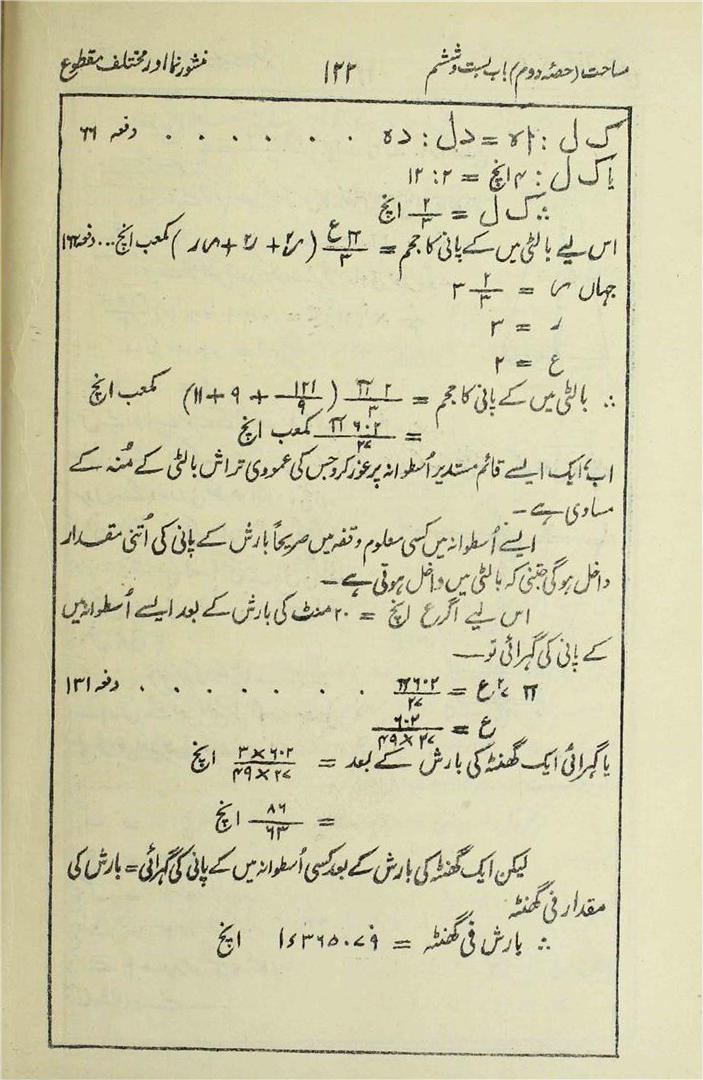 مساحت (حصۂ دوم) باب بست و ششم ۱۲۲ منشور نما اور مختلف مقطوع
ک ل : ا ہ = د ل : د ہ . . . . . . . دفعہ ۶۶
یا ک ل : ۴ انچ = ۲ : ۱۲
∴ ک ل = ۲/۳ انچ
اس لیے بالٹی میں کے پانی کا حجم = π ع/۳ (ر۲ + ر۲ + ر ر) مکعب انچ ... دفعہ ۱۶۶
جہاں ر = ۳ ۲/۳
ر = ۳
ع = ۲
∴ بالٹی میں کے پانی کا حجم = ۲ π/۳ (۱۲۱/۹ + ۹ + ۱۱) مکعب انچ
= ۶۰۲ π/۲۷ مکعب انچ
اب ایک ایسے قائم مستدیر اُسطوانہ پر غور کرو جس کی عمودی تراش بالٹی کے مُنہ کے
مساوی ہے ۔
ایسے اُسطوانہ میں کسی معلوم وقفہ میں صریحاً بارش کے پانی کی اُتنی مقدار
داخل ہوگی جتنی کہ بالٹی میں داخل ہوتی ہے ۔
اس لیے اگر ع انچ = ۲۰ منٹ کی بارش کے بعد ایسے اُسطوانہ میں
کے پانی کی گہرائی تو ــ
π ۷۲ ع = ۶۰۲ π/۲۷ . . . . . . . دفعہ ۱۳۱
ع = ۶۰۲/۴۹×۲۷
یا گہرائی ایک گھنٹہ کی بارش کے بعد = ۳×۶۰۲/۴۹×۲۷ انچ
= ۸۶/۶۳ انچ
لیکن ایک گھنٹہ کی بارش کے بعد کسی اُسطوانہ میں کے پانی کی گہرائی = بارش کی
مقدار فی گھنٹہ
∴ بارش فی گھنٹہ = ۱ء۳۶۵۰۷۹ انچ